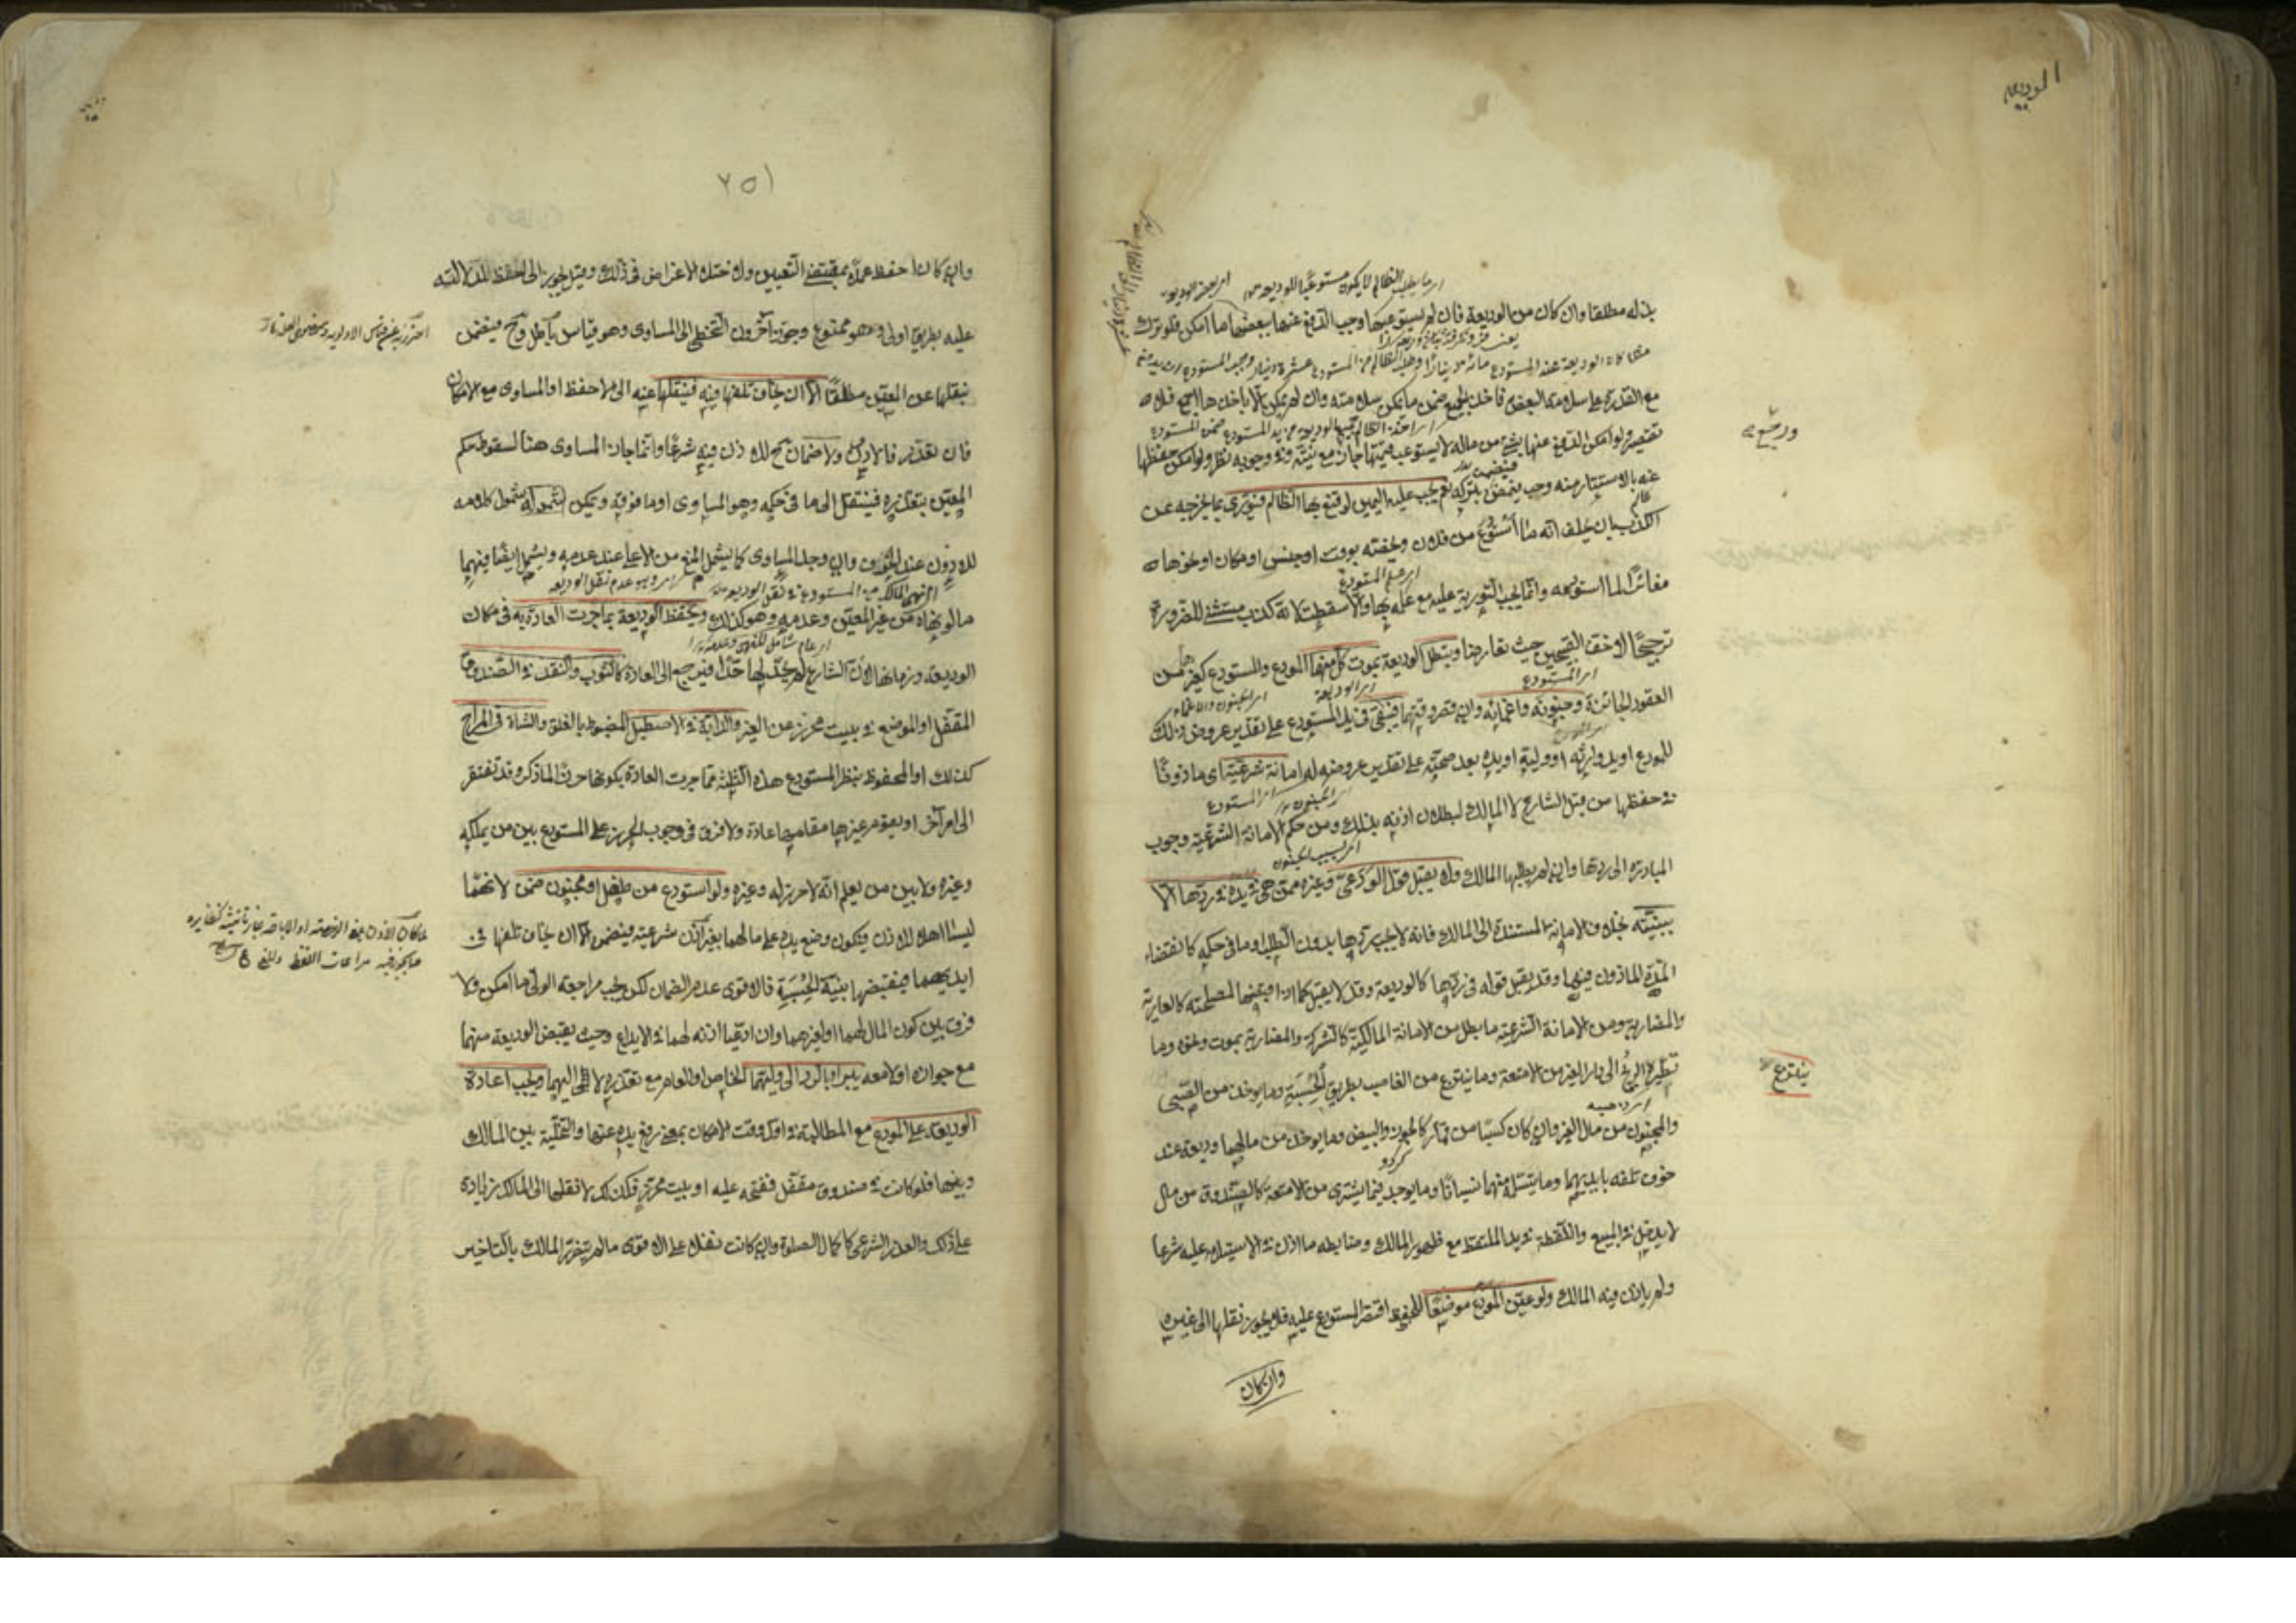 الوديعه
بذله مطلقا وان كان من الوديعة فان لم يستوعبها وجب الدفع عنها ببعضها ما امكن فلو ترك
مع القدرة على سلامة البعض فاخذ الجميع ضمن ما يمكن سلامته وان لم يمكن الا باخذها اجمع فلا
تقصير ولو امكن الدفع عنها بشئ من ماله لا يستوعب قيمتها جاز مع نيته وفي وجوبه نظر ولو امكن حفظها
عنه بالاستتار منه وجب فيضمن بتركه نعم يجب عليه اليمين لو قنع بها الظالم فيورى بما يخرجه عن
الكذب بان يحلف انه ما استودع من فلان ويخصه بوقت او جنس او مكان او نحوها
مغائرا لما استودعه وانما يجب التورية عليه مع علمه بها والا سقطت لانه كذب مستثنى للضرورة
ترجيحا لاخف القبيحين حيث تعارضا ويبطل الوديعة بموت كل منهما المودع والمستودع كغيرها من
العقود الجائزة وجنونه واغمائه وان قصر وقتهما فيبقى في يد المستودع على تقدير عروض ذلك
للمودع او يد وارثه او وليه او يده بعد صحته على تقدير عروضه له امانة شرعية اى ماذونا
في حفظها من قبل الشارع لا المالك لبطلان اذنه بذلك ومن حكم الامانة الشرعية وجوب
المبادرة الى ردها وان لم يطلبها المالك ولا يقبل قول الودعى وغيره ممن هي في يده في ردها الا
ببينة بخلاف الامانة المستندة الى المالك فانه لا يجب ردها بدون الطلب او ما في حكمه كانقضاء
المدة الماذون فيها وقد يقبل قوله في ردها كالوديعة وقد لا يقبل كما اذا قبضها لمصلحته كالعارية
والمضاربة ومن الامانة الشرعية ما بطل من الامانة المالكية كالشركة والمضاربة بموت ونحوه وما
تطيره الريح الى دار الغير من الامتعة وما ينتزع من الغاصب بطريق الحسبة وما يوخذ من الصبي
والمجنون من مال الغير وان كان كسبا من قمار كالجوز والبيض وما يوخذ من مالهما وديعة عند
خوف تلفه بايديهما وما يتسلمه منهما نسيانا وما يوجد فيما يشترى من الامتعة كالصندوق من مال
لا يدخل في المبيع واللقطة في يد الملتقط مع ظهور المالك وضابطه ما اذن في الاستيلاء عليه شرعا
ولم ياذن فيه المالك ولو عين المودع موضعا للحفظ اقتصر المستودع عليه فلا يجوز نقلها الى غيره
وان كان
ينتزع
٢٥١
وان كان احفظ عملا بمقتضى التعيين ولاختلاف الاغراض في ذلك وقيل يجوز الى الاحفظ لدلالته
عليه بطريق اولى وهو ممنوع وجوز آخرون التخطى الى المساوى وهو قياس باطل وح فيضمن
بنقلها عن المعين مطلقا الا ان يخاف تلفها فيه فينقلها عنه الى الاحفظ او المساوى مع الامكان
فان تعذر فالادون ولا ضمان ح للاذن فيه شرعا وانما جاز المساوى هنا لسقوط حكم
المعين بتعذره فينتقل الى ما في حكمه وهو المساوى او ما فوقه ويمكن شمول كلامه
للادون عند الخوف وان وجد المساوى كما يشمل المنع من الاعلى عند عدمه ويشمل ايضا فيهما
ما لو نهاه عن غير المعين وعدمه وهو كذلك ويحفظ الوديعة بما جرت العادة به في مكان
الوديعة وزمانها لان الشارع لم يحد لها حدا فيرجع الى العادة كالثوب والنقد في الصندوق
المقفل او الموضع في بيت محرز عن الغير والدابة في الاصطبل المضبوط بالغلق والشاة في المراح
كذلك او المحفوظ بنظر المستودع هذه الثلثة مما جرت العادة بكونها حرزا لما ذكر وقد تفتقر
الى امر آخر او يقوم غيرها مقامها عادة ولا فرق في وجوب الحرز على المستودع بين من يملكه
وغيره ولا بين من يعلم انه لا حرز له وغيره ولو استودع من طفل او مجنون ضمن لانهما
ليسا اهلا للاذن فيكون وضع يده على مالهما بغير اذن شرعية فيضمن الا ان يخاف تلفها في
ايديهما فيقبضها بنية الحسبة فالاقوى عدم الضمان لكن يجب مراجعة الولى ما امكن ولا
فرق بين كون المال لهما او لغيرهما وان ادعيا اذنه لهما في الايداع وحيث يقبض الوديعة منهما
مع جوازه او لا معه يبرا بالرد الى وليهما الخاص او العام مع تعذره لا اليهما ويجب اعادة
الوديعة على المودع مع المطالبة في اول وقت الامكان بمعنى رفع يده عنها والتخلية بين المالك
وبينها فلو كانت في صندوق مقفل ففتحه عليه او بيت محرز فكذلك لا نقلها الى المالك زيادة
على ذلك والعذر الشرعى كاكمال الصلوة وان كانت نفلا على الاقوى ما لم يتضرر المالك بالتاخير